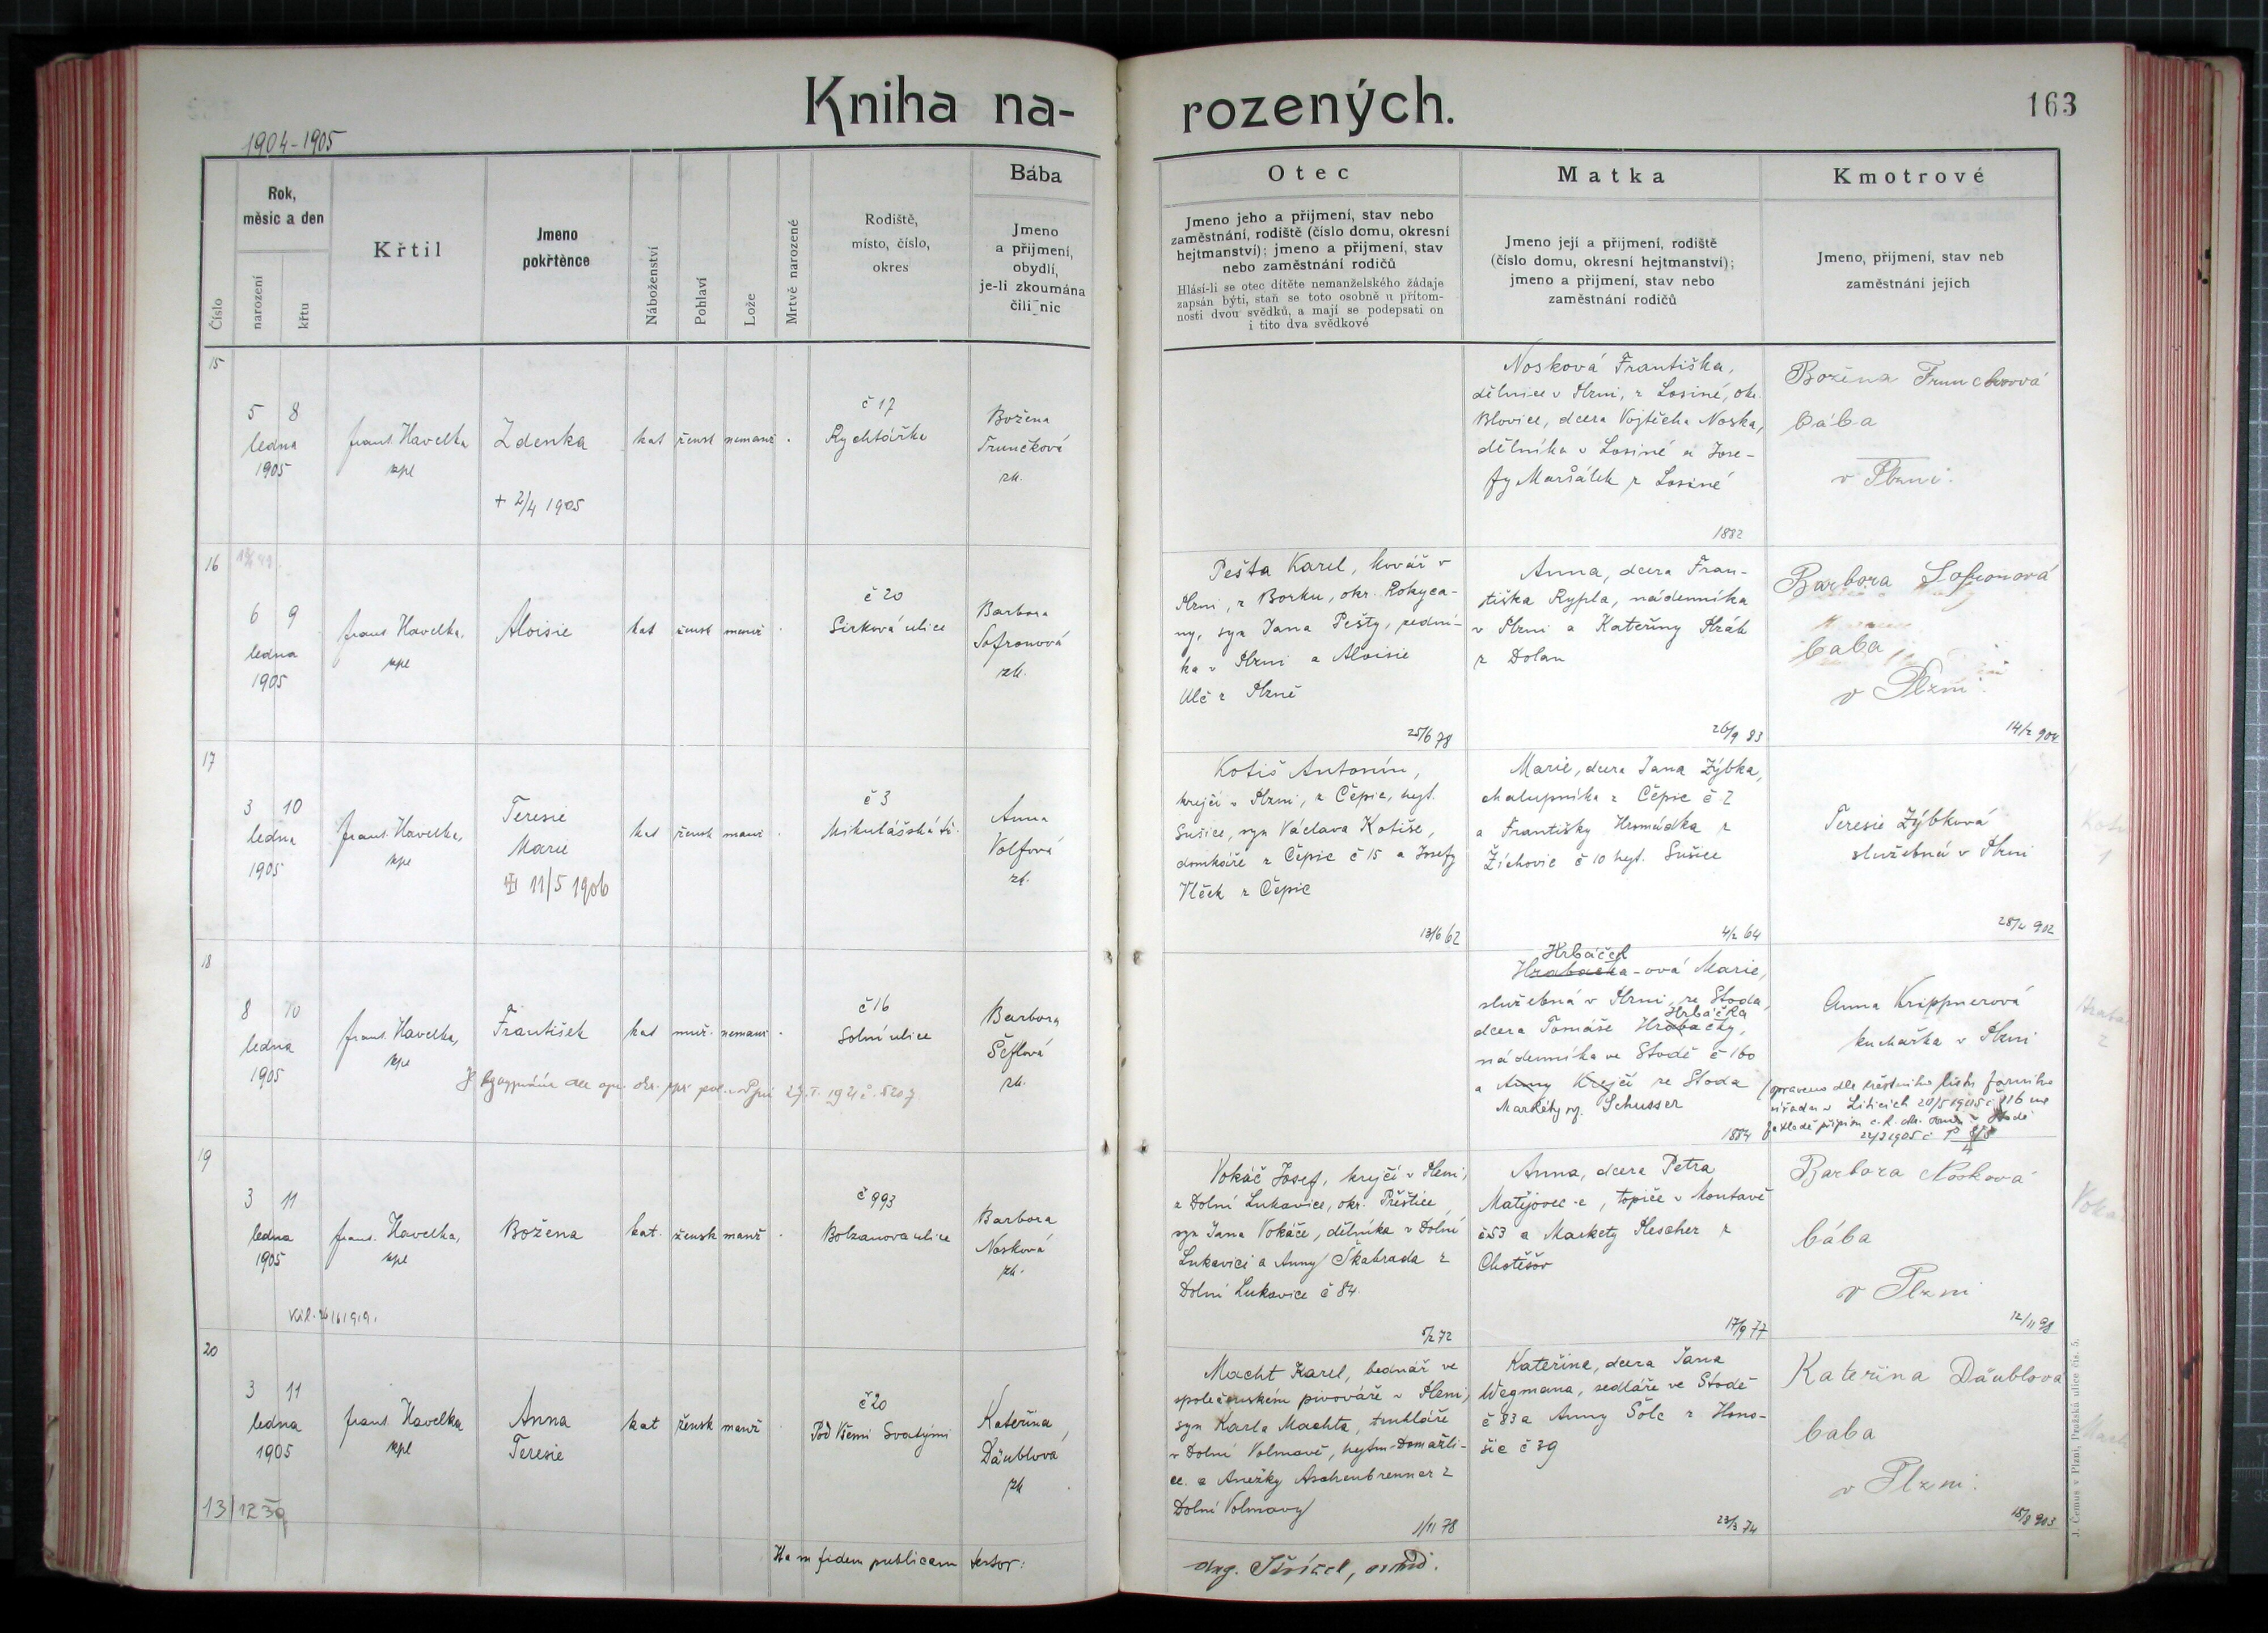 Kniha na-
rozených.
163
1904-1905
Číslo
Rok,
měsíc a den
narození
křtu
Křtil
Jmeno
pokřtěnce
Náboženství
Pohlaví
Lože
Mrtvě narozené
Rodiště,
místo, číslo,
okres
Bába
Jmeno
a příjmení,
obydlí,
je-li zkoumána
čili nic
Otec
Jmeno jeho a přijmení, stav nebo
zaměstnání, rodiště (číslo domu, okresní
hejtmanství); jmeno a přijmení, stav
nebo zaměstnání rodičů
Hlásí-li se otec dítěte nemanželského žádaje
zapsán býti, staň se toto osobně u přítom-
nosti dvou svědků, a mají se podepsati on
i tito dva svědkové
Matka
Jmeno její a přijmení, rodiště
(číslo domu, okresní hejtmanství);
jmeno a přijmení, stav nebo
zaměstnání rodičů
Kmotrové
Jmeno, přijmení, stav neb
zaměstnání jejich
15
5 8
ledna
1905
frant. Havelka
kpl
Zdenka
+ 2/4 1905
kat žensk nemanž
č 17
Rychtářka
Božena
Trunečková
zk.
Nosková Františka,
dělnice v Plzni, z Losiné, okr.
Blovice, dcera Vojtěcha Noska,
dělníka v Losiné a Jose-
fy Maršálek z Losiné
1882
Božena
bába
v Plzni.
16
6 9
ledna
1905
frant. Havelka,
kpl
Aloisie
kat žensk manž
č 20
Sirková ulice
Barbora
Sofronová
zk.
Pešta Karel, kovář v
Plzni, z Borku, okr. Rokyca-
ny, syn Jana Pešty, zední-
ka v Plzni a Aloisie
Ulč z Plzně
25/6 78
Anna, dcera Fran-
tiška Rypla, nádenníka
v Plzni a Kateřiny
z Dolan
26/9 83
Barbora Sofronová
baba
v Plzni
14/2 904
17
3 10
ledna
1905
frant. Havelka,
kpl
Teresie
Marie
11/5 1906
kat žensk manž
č 3
Mikulášská tř.
Anna
Volfová
zk.
Kotiš Antonín,
krejčí v Plzni, z Čepic, hejt.
Sušice, syn Václava Kotiše,
domkáře z Čepic č 15 a Josefy
Vlček z Čepic
13/6 62
Marie, dcera Jana Zýbka,
chalupníka z Čepic č 2
a Františky Hromádka z
Žichovic č 10 hejt. Sušice
4/2 64
Teresie Zýbková
služebná v Plzni
28/2 902
18
8 10
ledna
1905
frant. Havelka,
kpl
František
kat muž. nemanž
č 16
Solní ulice
Barbora
Šeflová
zk.
Hrbáček
Hrabačka-ová Marie,
služebná v Plzni, ze Stoda,
Hrbáčka
dcera Tomáše Hrabačky,
nádenníka ve Stodě č 160
a Anny Krejčí ze Stoda
Markéty roz. Schusser
1884
Anna Krippnerová
kuchařka v Plzni
opraveno dle křestního listu farního
úřadu v Liticích 20/5 1905 č 116 na
19
3 11
ledna
1905
frant. Havelka,
kpl
Božena
kat. žensk manž
č 993
Bolzanova ulice
Barbora
Nosková
zk.
Vokáč Josef, krejčí v Plzni,
z Dolní Lukavice, okr. Přeštice,
syn Jana Vokáče, dělníka v Dolní
Lukavici a Anny Škabrada z
Dolní Lukavice č 84.
Anna, dcera Petra
Matějovec-e, topiče v Mantavě
č 53 a Markety Plescher z
Chotěšov
17/9 77
Barbora Nosková
bába
v Plzni
12/11 98
20
3 11
ledna
1905
frant. Havelka
kpl
Anna
Teresie
kat žensk manž
č 20
Pod Všemi Svatými
Kateřina
Däublová
zk
Macht Karel, bednář ve
společenském pivováře v Plzni,
syn Karla Machta, truhláře
v Dolní Volmavě, hejtm. Domažli-
ce a Anežky Aschenbrenner z
Dolní Volmavy
1/11 78
Kateřina, dcera Jana
Wagmana, sedláře ve Stodě
č 83 a Anny Šolc z Hono-
šic č 39
23/3 74
Kateřina Däublová
baba
v Plzni.
15/8 903
13/12 39
fidem publicam testor:
J. Čemus v Plzni, Pražská ulice čís. 5.